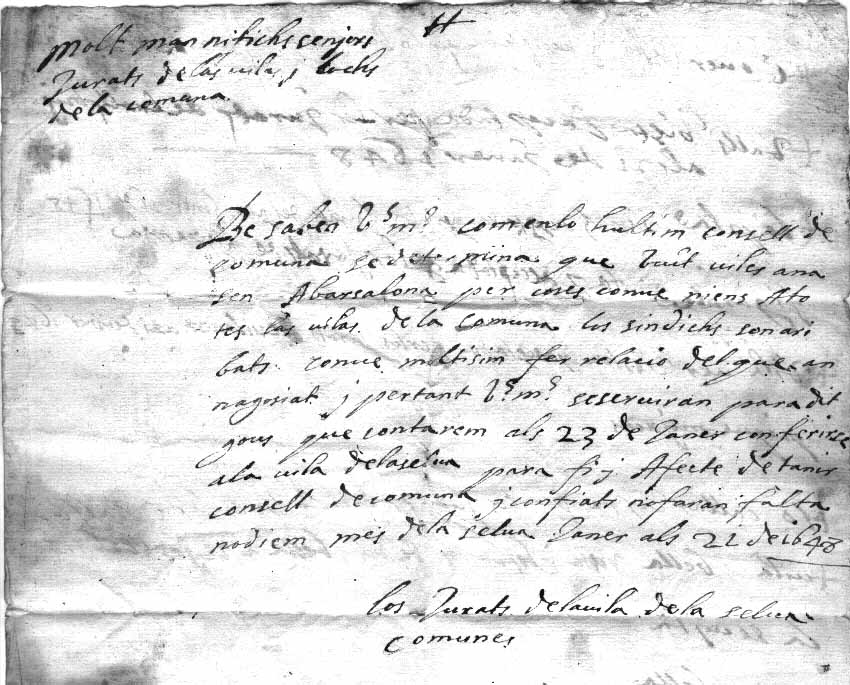 Molt mannifichs senjors
Jurats de las vilas j lochs
de la comuna
Be saben Vs ms com en lo hultim consell de
comuna se determina que vuit viles ana
sen Abarsalona per cosas conve niens Ato
tes las vilas de la Comuna los sindichs son ari
bats conve moltisim fer relacio del que an
nagosiat j pertant Vs ms se serviran para dit
gous que contarem als 23 de Janer conferirse
ala vila dela selva para fi j Afecte de tanir
consell de comuna j confiats no faran falta
no diem mes de la selva Janer als 21 de 1648
los Jurats de la vila de la selva
comunes